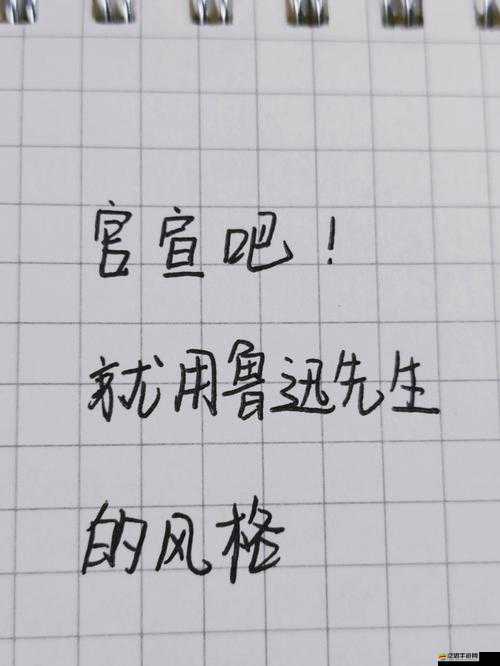 官宣吧！
就用鲁迅先生
的风格